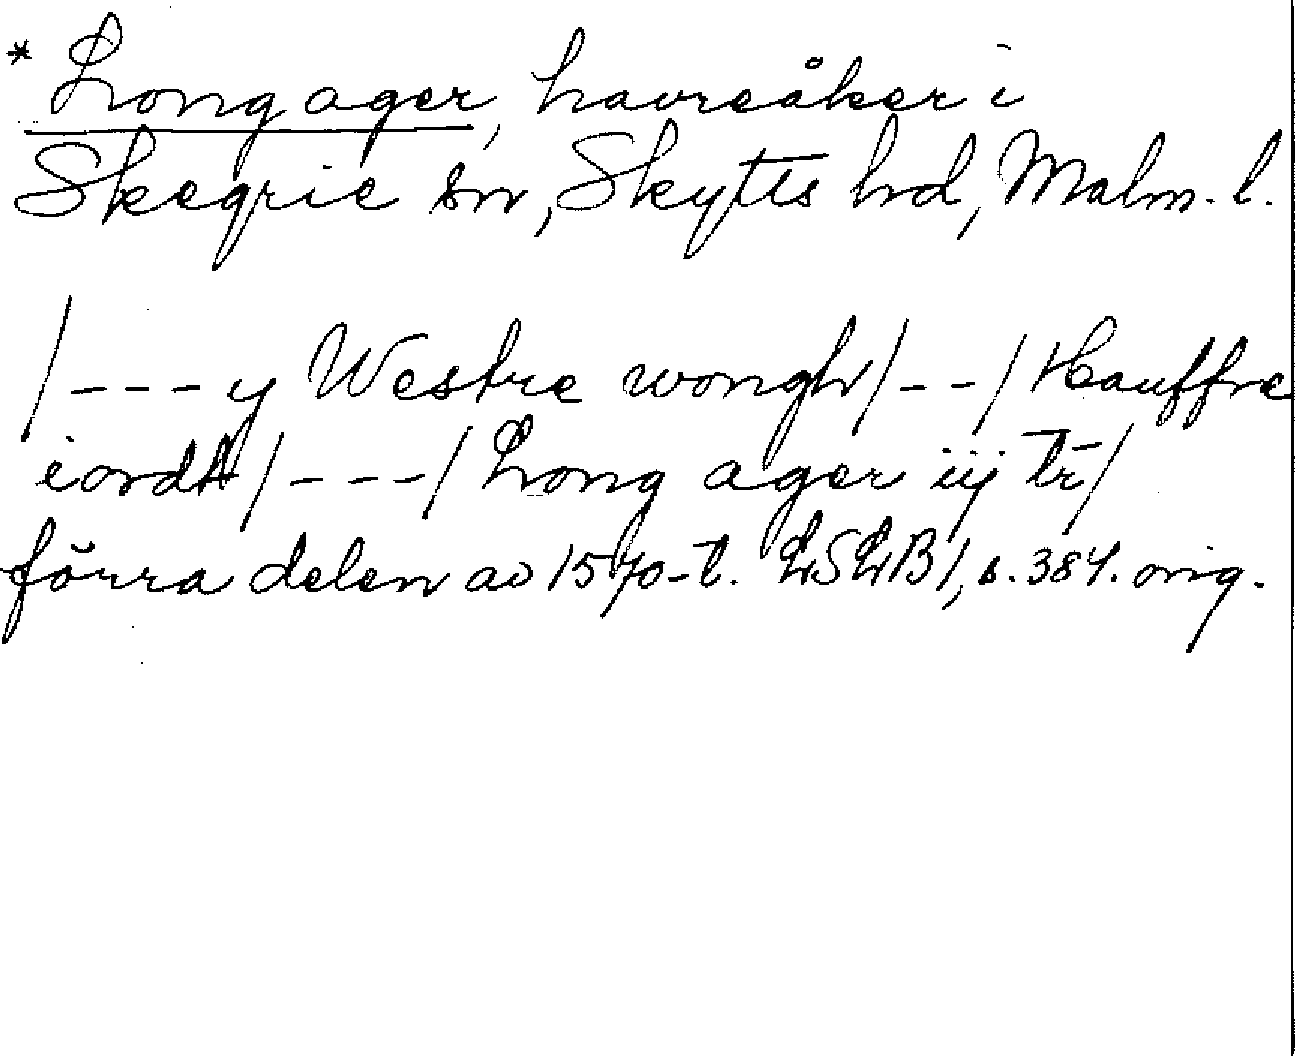 * Long ager, havreåker i
Skegrie sn, Skytts hd, Malm. l.
/---y Westre wongh/--/Hauffre
iordt/---/Long ager iij tr̄/
förra delen av 1570-t. LSLB1, s. 384. orig.